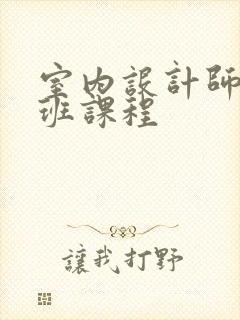 室內設計師
班課程
讓我打野